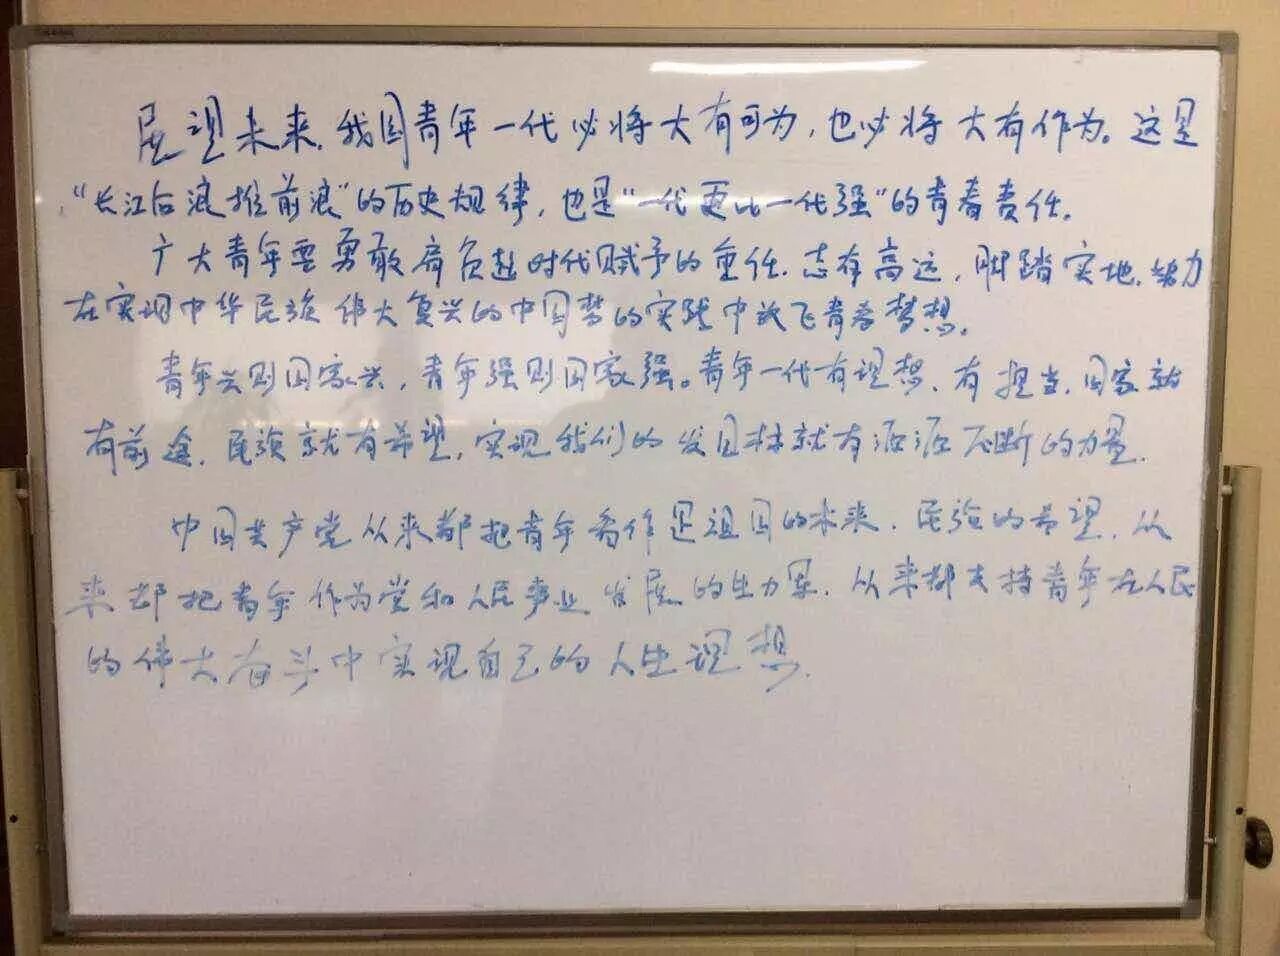 展望未来,我国青年一代必将大有可为,也必将大有作为。这是
“长江后浪推前浪”的历史规律,也是“一代更比一代强”的青春责任。
广大青年要勇敢肩负起时代赋予的重任,志有高远,脚踏实地,努力
在实现中华民族伟大复兴的中国梦的实践中放飞青春梦想。
青年兴则国家兴,青年强则国家强。青年一代有理想、有担当,国家就
有前途,民族就有希望,实现我们的发目标就有源源不断的力量。
中国共产党从来都把青年看作是祖国的未来、民族的希望,从
来都把青年作为党和人民事业发展的生力军,从来都支持青年在人民
的伟大奋斗中实现自己的人生理想。